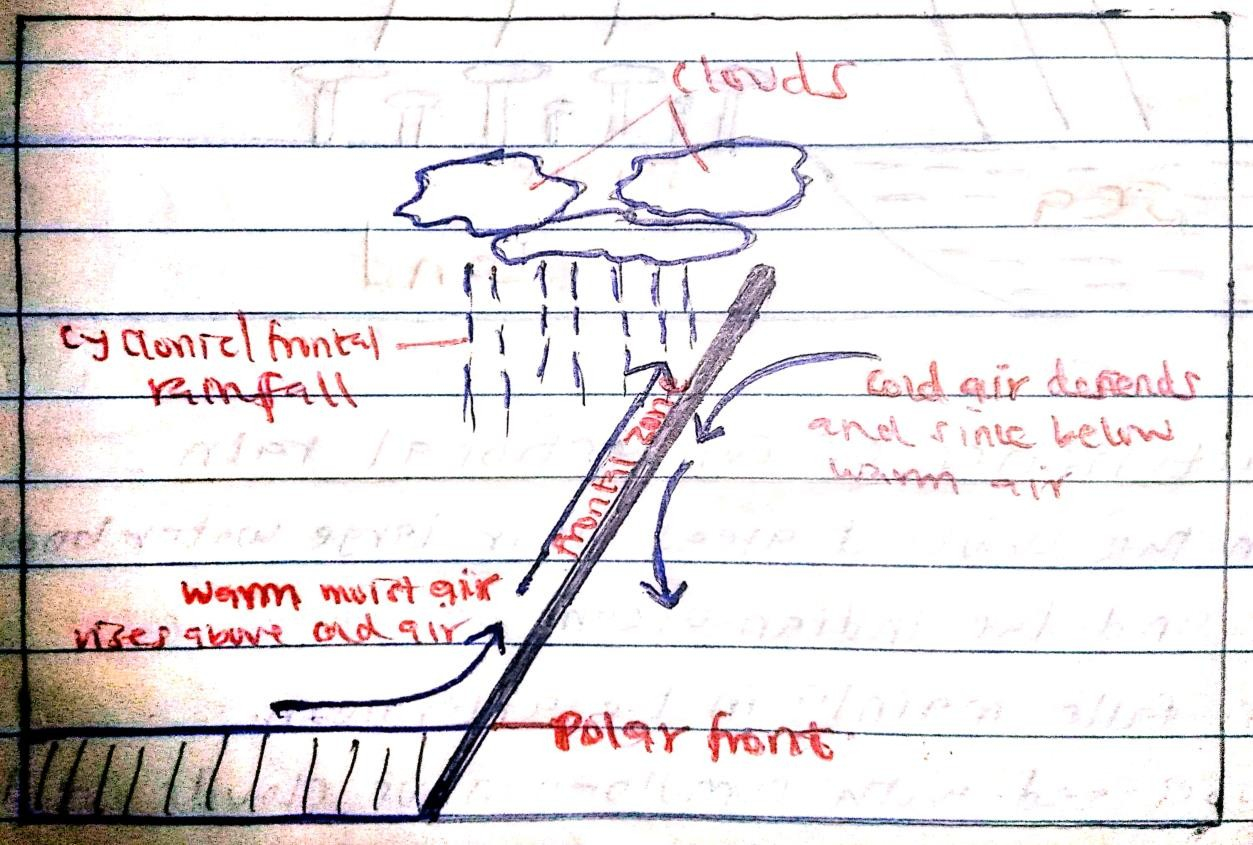 Clouds
Cyclonic/frontal
rainfall
Cold air depends
and since below
warm air
frontal zone
warm moist air
rises above cold air
Polar front